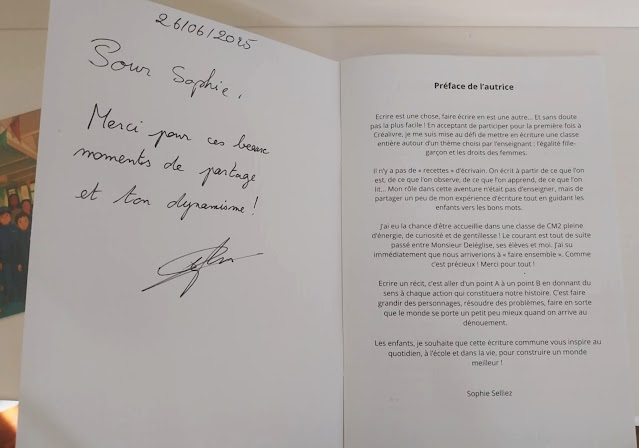 26/06/2025
Pour Sophie,
Merci pour ces beaux
moments de partage
et ton dynamisme !
Préface de l'autrice
Ecrire est une chose, faire écrire en est une autre... Et sans doute
pas la plus facile ! En acceptant de participer pour la première fois à
Créalivre, je me suis mise au défi de mettre en écriture une classe
entière autour d'un thème choisi par l'enseignant : l'égalité fille-
garçon et les droits des femmes.
Il n'y a pas de « recettes » d'écrivain. On écrit à partir de ce que l'on
est, de ce que l'on observe, de ce que l'on apprend, de ce que l'on
lit... Mon rôle dans cette aventure n'était pas d'enseigner, mais de
partager un peu de mon expérience d'écriture tout en guidant les
enfants vers les bons mots.
J'ai eu la chance d'être accueillie dans une classe de CM2 pleine
d'énergie, de curiosité et de gentillesse ! Le courant est tout de suite
passé entre Monsieur Deléglise, ses élèves et moi. J'ai su
immédiatement que nous arriverions à « faire ensemble ». Comme
c'est précieux ! Merci pour tout !
Ecrire un récit, c'est aller d'un point A à un point B en donnant du
sens à chaque action qui constituera notre histoire. C'est faire
grandir des personnages, résoudre des problèmes, faire en sorte
que le monde se porte un petit peu mieux quand on arrive au
dénouement.
Les enfants, je souhaite que cette écriture commune vous inspire au
quotidien, à l'école et dans la vie, pour construire un monde
meilleur !
Sophie Selliez